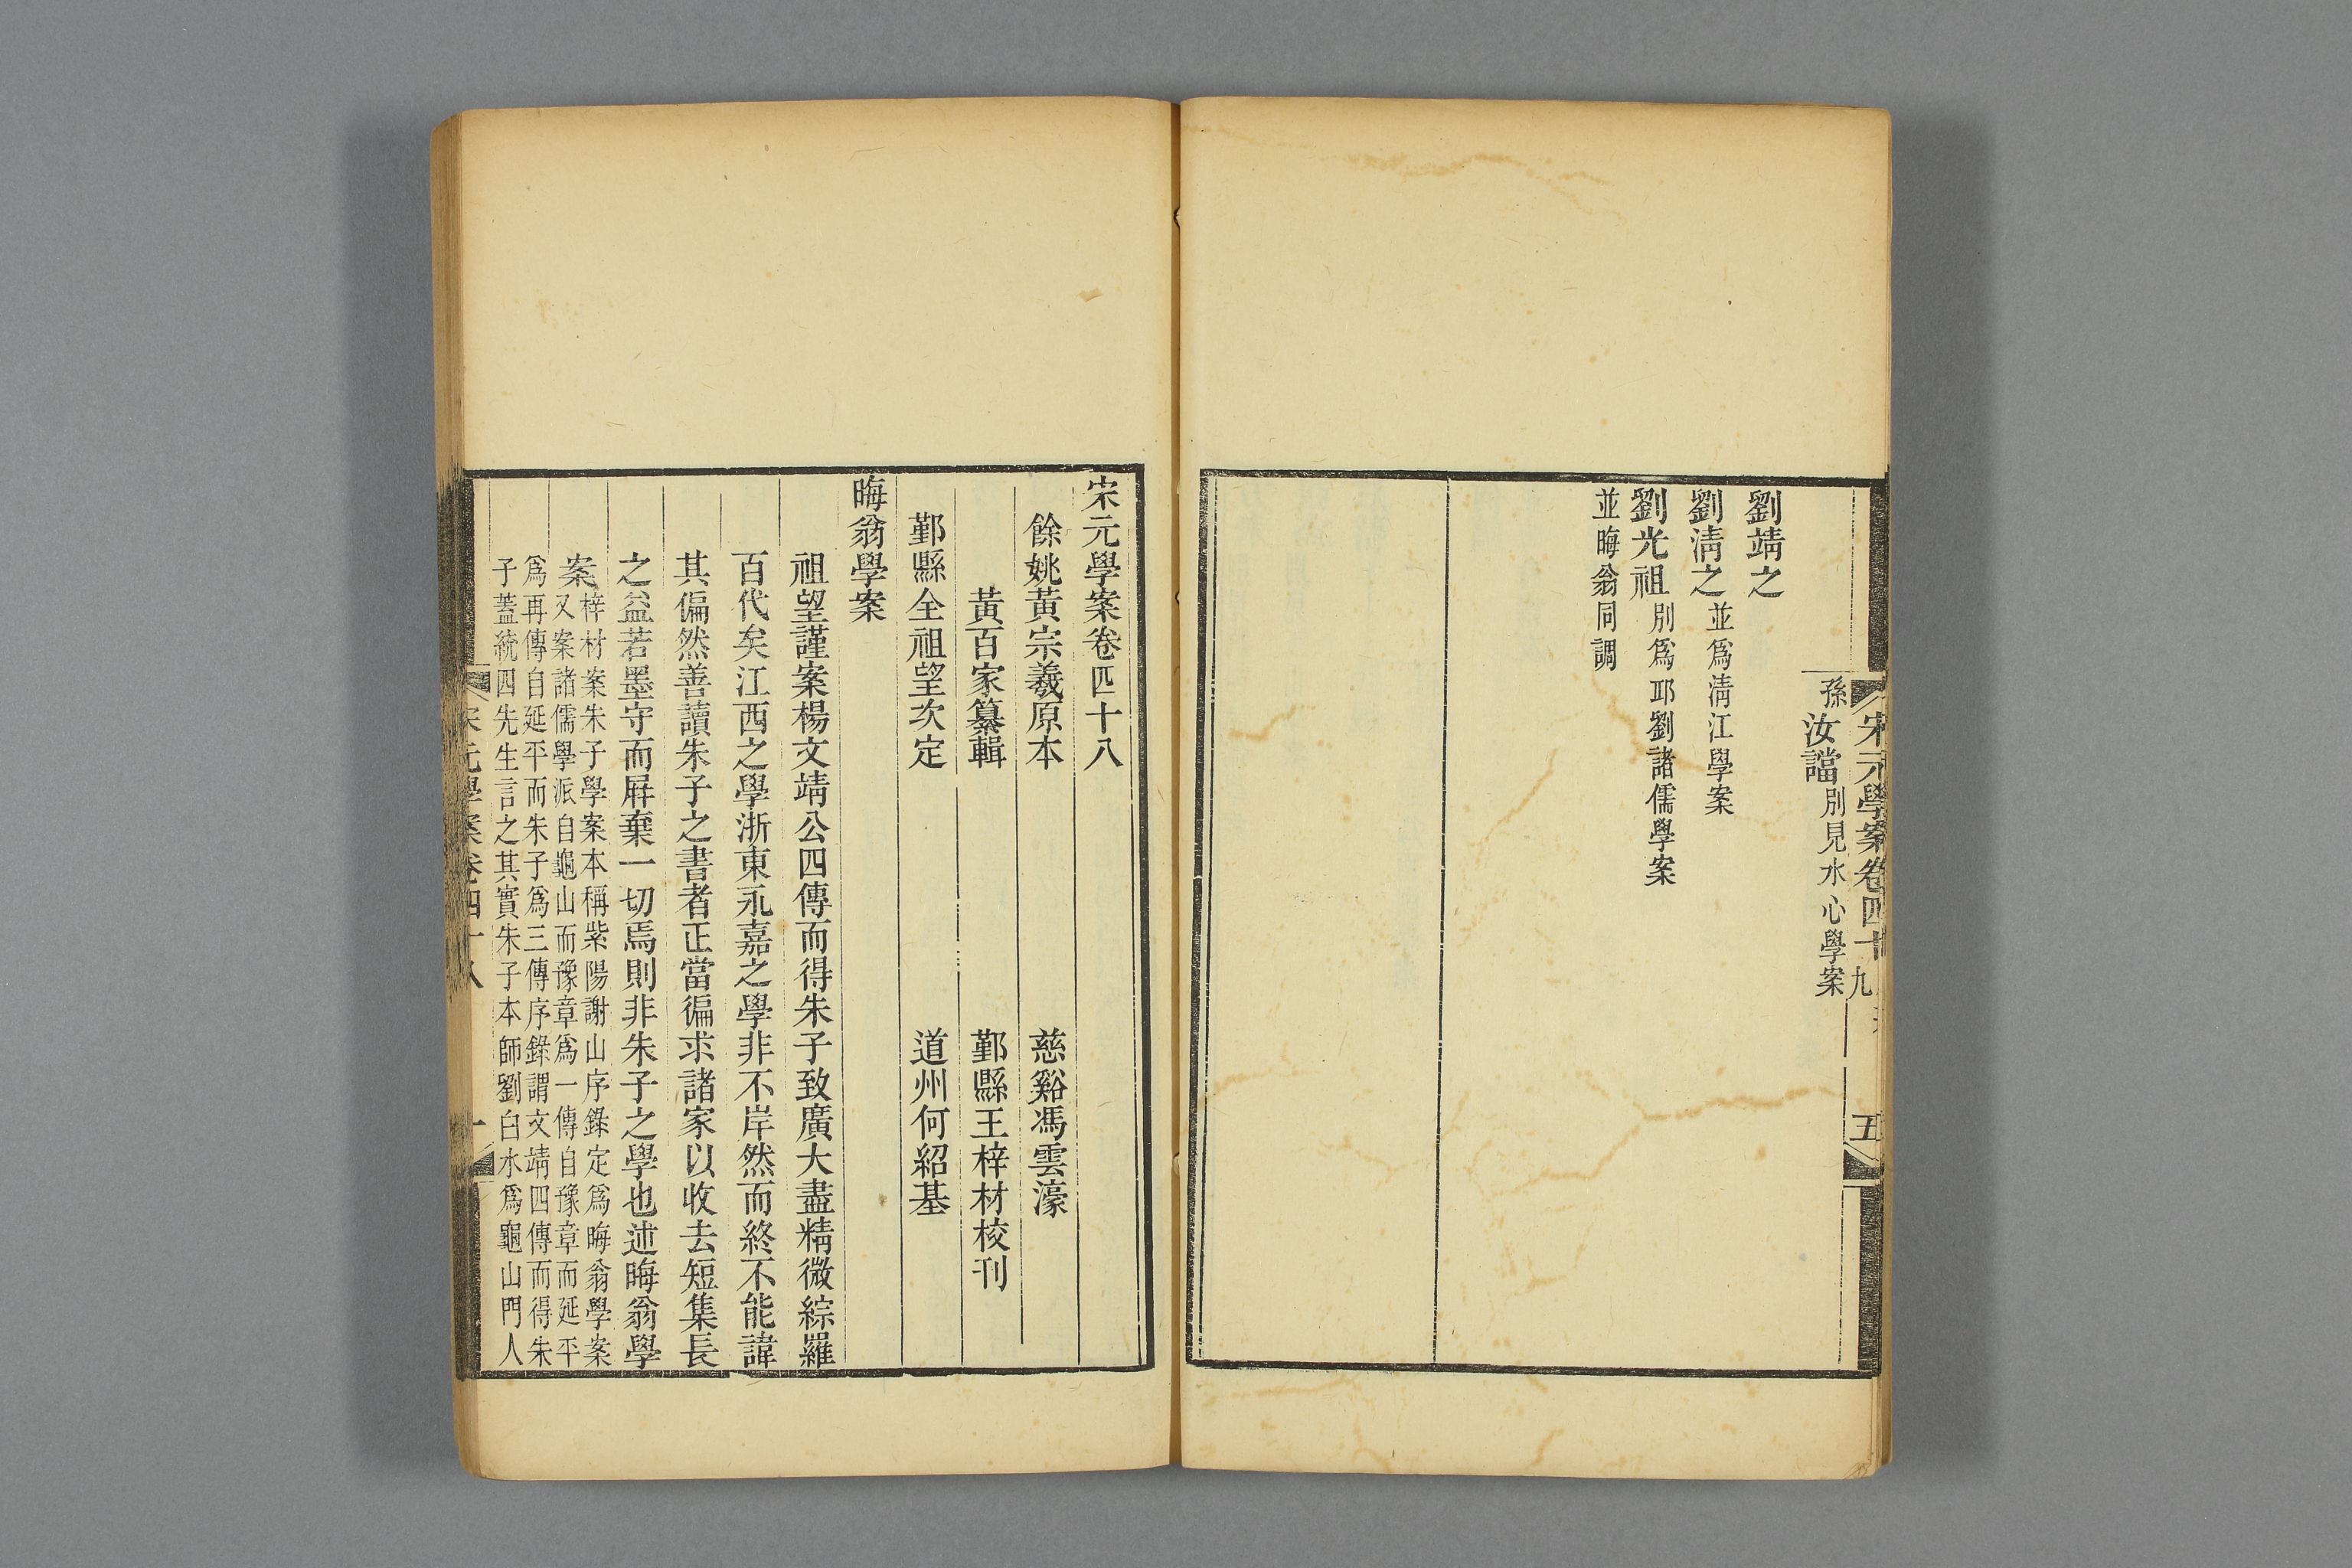 宋元學案卷四十九
五
孫
汝譡別見水心學案
劉靖之
劉淸之並爲淸江學案
劉光祖別爲邱劉諸儒學案
並晦翁同調
宋元學案卷四十八
餘姚黃宗羲原本 慈谿馮雲濠
黃百家纂輯 鄞縣王梓材校刊
鄞縣全祖望次定 道州何紹基
晦翁學案
祖望謹案楊文靖公四傳而得朱子致廣大盡精微綜羅
百代矣江西之學浙東永嘉之學非不岸然而終不能諱
其偏然善讀朱子之書者正當徧求諸家以收去短集長
之益若墨守而屛棄一切焉則非朱子之學也述晦翁學
案
梓材案朱子學案本稱紫陽謝山序錄定爲晦翁學案
又案諸儒學派自龜山而豫章爲一傳自豫章而延平
爲再傳自延平而朱子爲三傳序錄謂文靖四傳而得朱
子蓋統四先生言之其實朱子本師劉白水爲龜山門人
宋元學案卷四十八
一